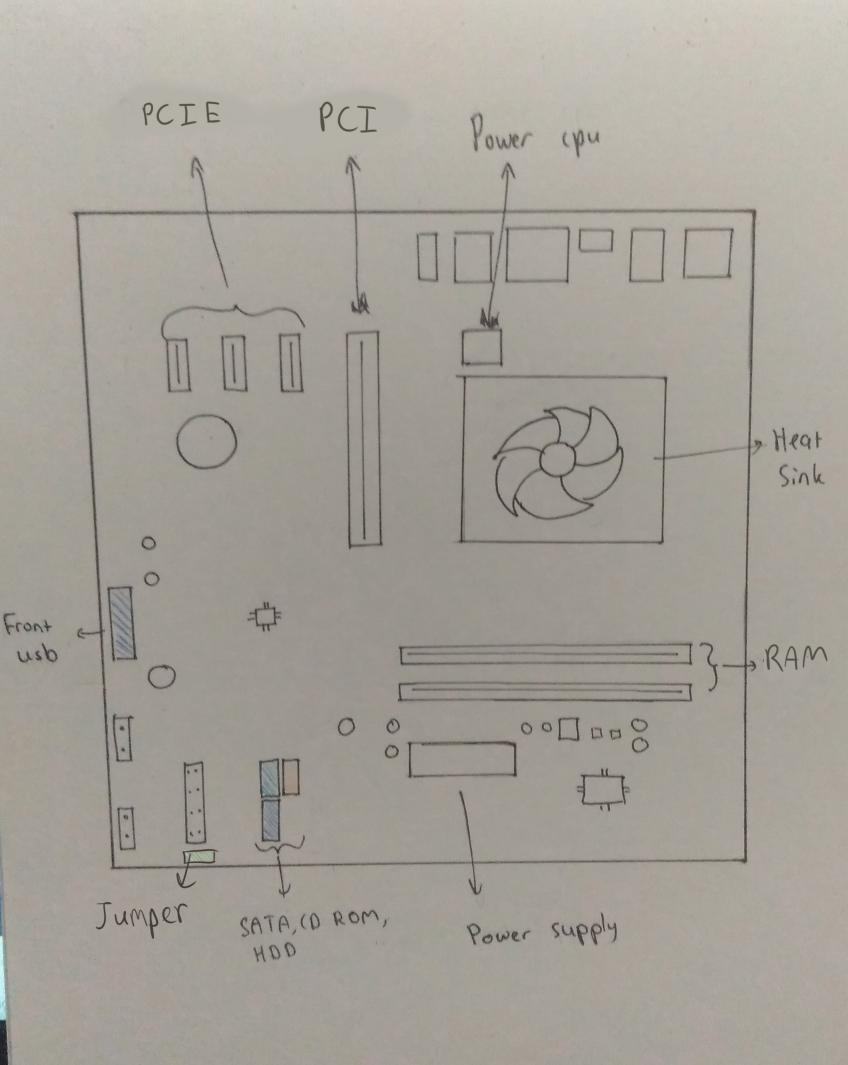 PCIE
PCI
Power cpu
Heat
Sink
Front
usb
RAM
Jumper
SATA, CD ROM,
HDD
Power supply